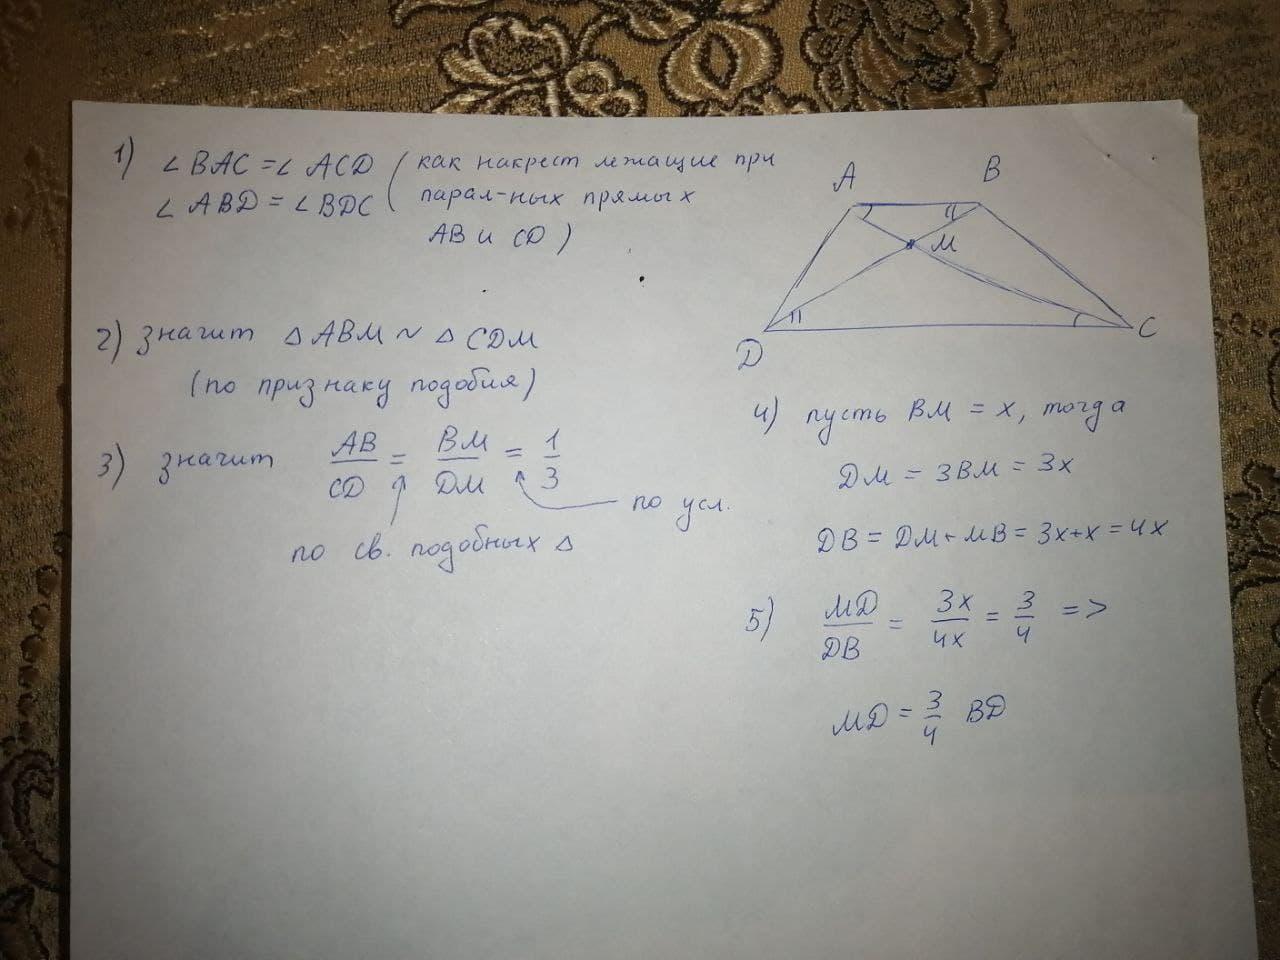 1) ∠ BAC = ∠ ACD ( как накрест лежащие при
∠ ABD = ∠ BDC парал-ных прямых
AB и CD )
2) значит △ ABM ~ △ CDM
(по признаку подобия)
3) значит AB/CD = BM/DM = 1/3
по усл.
по св. подобных △
A B
M
D C
4) пусть BM = x, тогда
DM = 3BM = 3x
DB = DM + MB = 3x+x = 4x
5) MD/DB = 3x/4x = 3/4 =>
MD = 3/4 BD